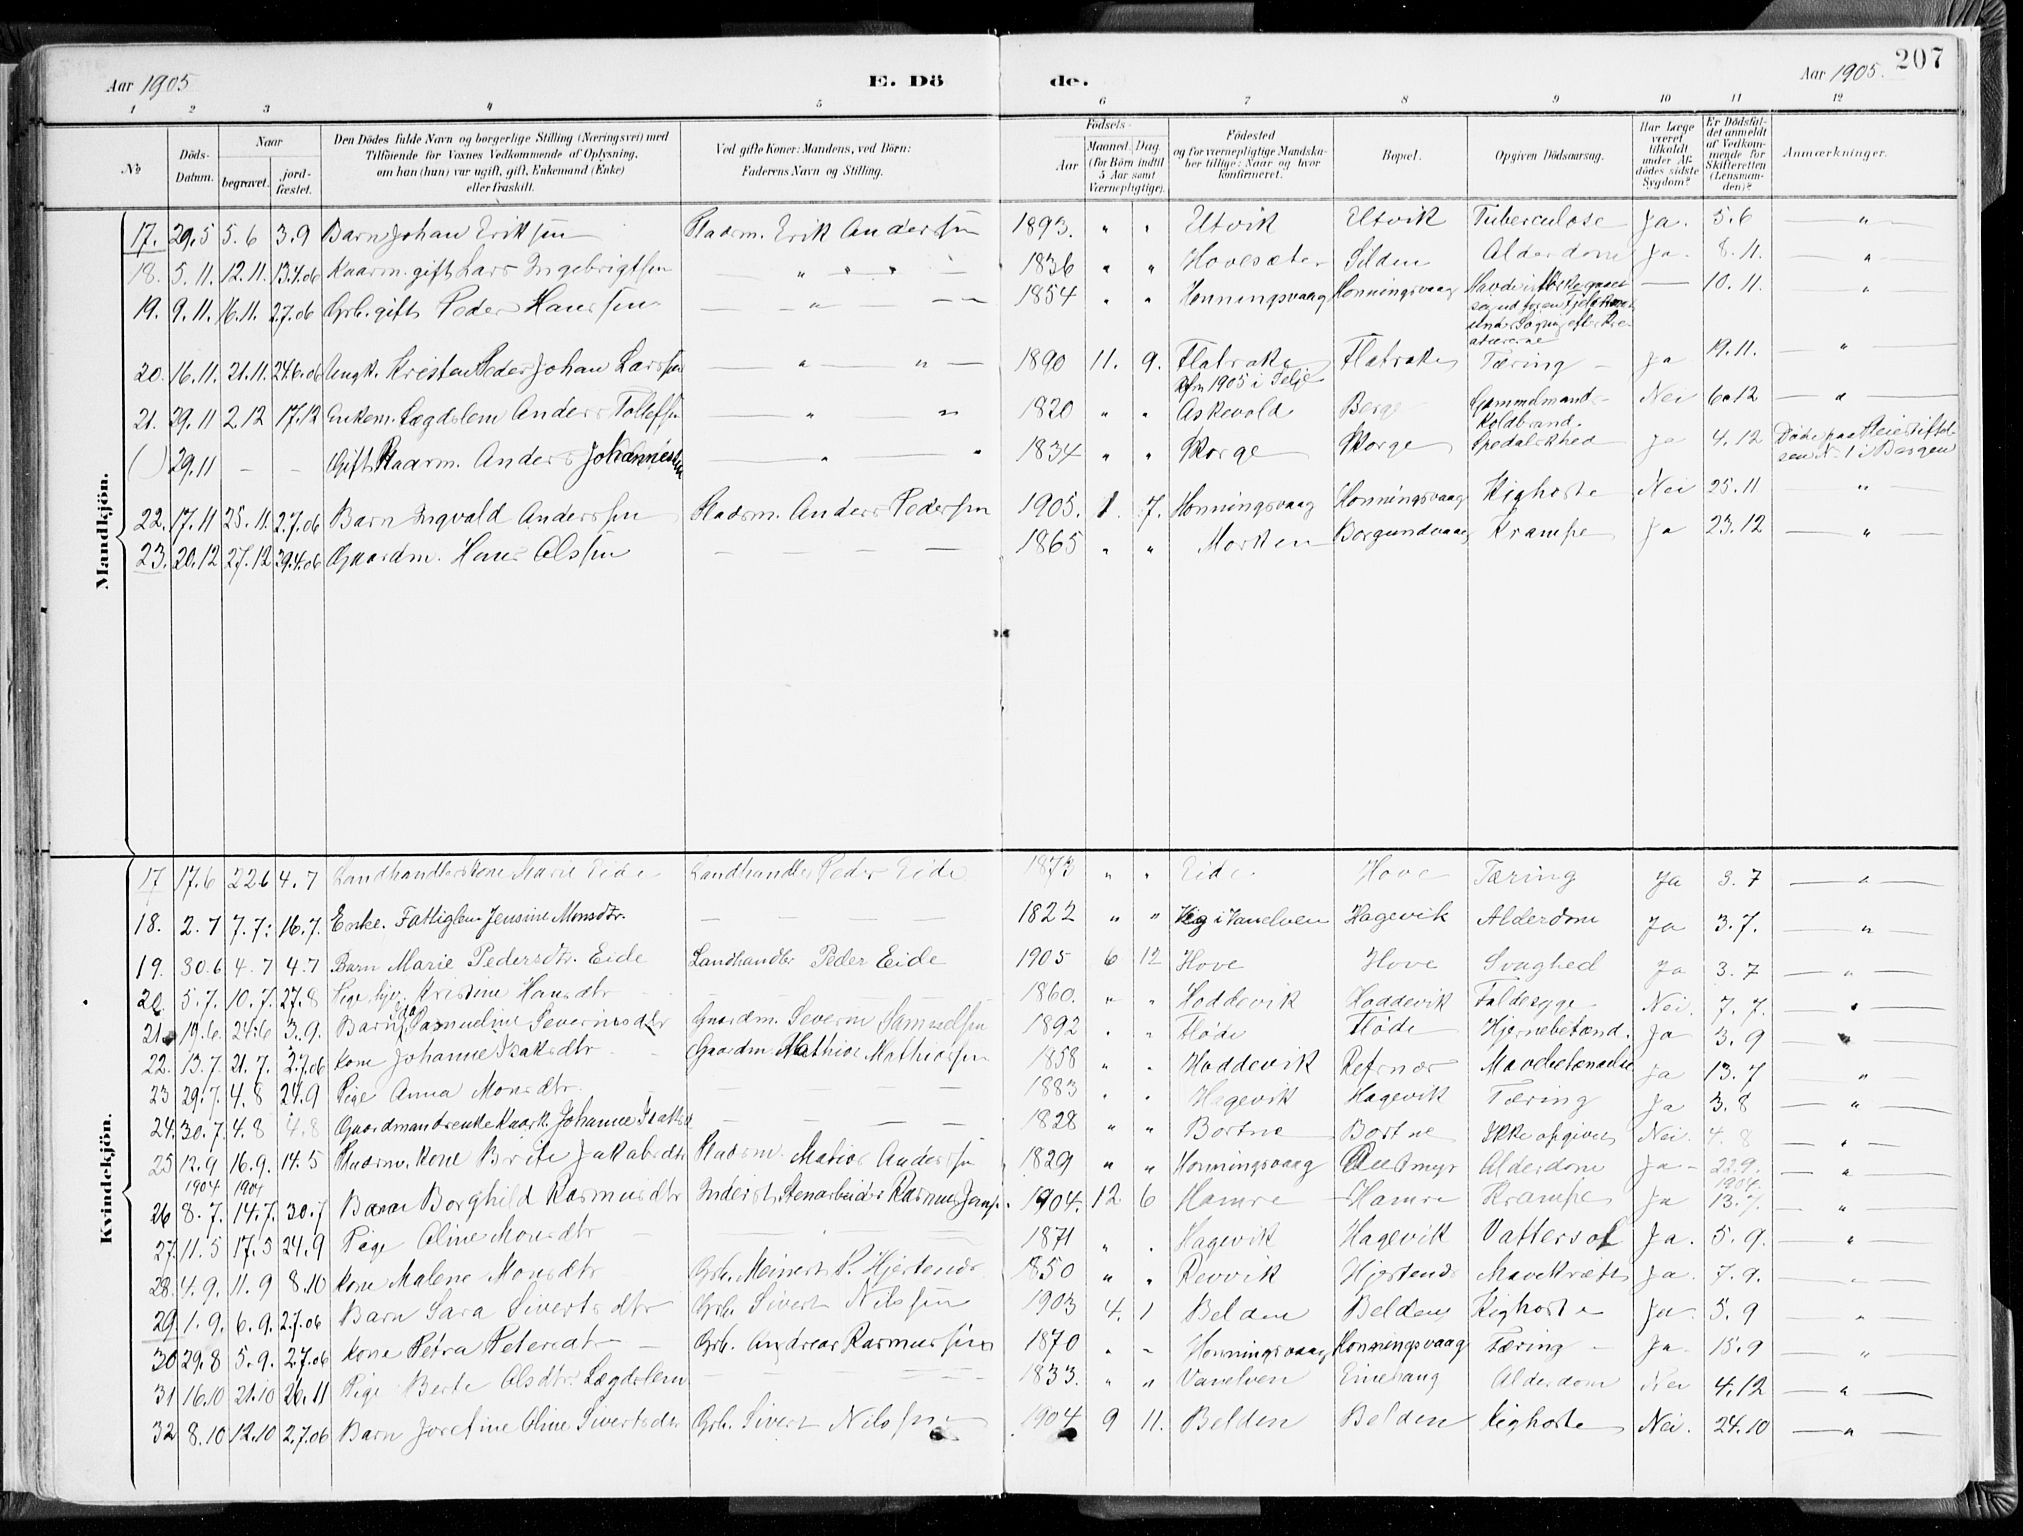 207
Aar 1905 E. Dö de. Aar 1905.
1 2 3 4 5 6 7 8 9 10 11 12
No Döds-Datum. Naar begravet. jord-fæstet. Den Dödes fulde Navn og borgerlige Stilling (Næringsvei) med Tilföiende for Voxnes Vedkommende af Oplysning, om han (hun) var ugift, gift, Enkemand (Enke) eller fraskilt. Ved gifte Koner: Mandens, ved Börn: Faderens Navn og Stilling. Födsels- Aar Maaned. Dag. (for Börn indtil 5 Aar samt Værnepligtige). Födested og for værnepligtige Mandska-ber tillige: Naar og hvor konfirmeret. Bopæl. Opgiven Dödsaarsag. Har Læge været tilkaldt under Af-dödes sidste Sygdom? Er Dödsfal-det anmeldt af Vedkom-mende for Skifteretten (Lensman-den)? Anmærkninger.
Mandkjön.
17. 29.5 5.6 3.9 Barn Johan Eriksen Pladsm. Erik Anderssen 1893. " " Utvik Utvik Tuberculose Ja. 5.6 "
18. 5.11. 12.11. 13.4.06 Kaarm. gift Lars Ingebrigtsen — " " " — 1836 " " Hovesæter Silden Alderdom Ja. 8.11. "
19. 9.11. 16.11. 2.7.06 Grb. gift Peder Hanssen — " — 1854 " " Honningsvaag Honningsvaag — 10.11. "
20. 16.11. 21.11. 24.6.06 Ungk. Kristen Peder Johan Larssen — " " — 1890 11. 9. Flatrake Flatrake Tæring — Ja 19.11. "
Kfm 1905 i Selje
21. 29.11 2.12 17.12 Enkem. Lægdslem Anders Tollefsen — " " 1820 " " Askevold Berge Gammelmands- Nei 6.12 — " —
Koldbrand.
( ) 29.11 — — Gift Kaarm. Anders Johannessen — " " 1834 " " Skorge Skorge Spedalskhed Ja 4.12 Döde paa Pleiestiftel-
sen No 1 i Bergen
22. 17.11 25.11. 2.7.06 Barn Ingvald Anderssen Pladsm. Anders Pedersen 1905. 1. 7. Honningsvaag Honningsvaag Kighoste Nei 25.11 "
23. 20.12 27.12 29.4.06 Gaardm. Hans Olssen — — — — 1865 " " Morken Borgundvaag Krampe Ja 23.12 — " —
Kvindekjön.
17 17.6 22.6 4.7 Landhandlerskone Marie Eide Landhandler Peder Eide 1873 " " Eide Hove Tæring Ja 3.7 — " —
18. 2.7 7.7. 16.7. Enke. Fattiglem Jensine Monsdtr. — — — 1822 " " i Vanelven Hagevik Alderdom Ja 3.7. — " —
19. 30.6 4.7 4.7 Barn Marie Pedersdtr. Eide Landhandler Peder Eide 1905 6 12 Hove Hove Svaghed Ja 3.7 — " —
20. 5.7. 10.7. 27.8 Pige Kristine Hansdtr — — — 1860. " " Hoddevik Hoddevik Faldesyge Nei. 7.7. — " —
21. 19.6. 24.6 3.9. Barn Samueline Severinsdtr Gaardm. Severin Samuelsen 1892 " " Flöde Flöde Hjernebetænd. Ja 3.9 "
22. 13.7. 21.7. 2.7.06 Kone Johanne Isaksdtr Gaardm. Mathias Mathiassen 1858 " " Hoddevik Refsnær Mavebetændelse Ja 13.7 "
23 29.7. 4.8 24.9 Pige Anna Monsdtr. — — — 1883 " " Hagevik Hagevik Tæring Ja 3.8 — " —
24. 30.7. 4.8 4.8 Gaardmandsenke Kaark. Johanne Isaksd — — 1828 " " Bortne Bortne Ikke opgivet Nei. 4.8 "
25 12.9 16.9. 14.5 Pladsm. Kone Brite Jakobsdtr Pladsm. Matias Anderssen 1829 " " Honningsvaag Alderdom Ja - 22.9. "
1904 1904 1904.
26 8.7. 14.7. 30.7 Barn Borghild Rasmusdtr Inderst, Stenarbeider Rasmus 1904. 12 6 Hamre Hamre Krampe Ja 13.7. "
27. 11.5 17.5 24.9 Pige Oline Monsdtr — — — 1871 " " Hagevik Hagevik Vattersot Ja. 5.9. — " —
28. 4.9. 11.9 8.10 Kone Malene Monsdtr Grb. Meinert P. Hjertenæs 1850 " " Revvik Hjertenæs Mavekræft Ja. 7.9. "
29. 1.9. 6.9. 2.7.06 Barn Sara Sivertsdtr Grb. Sivert Nilssen 1903 4. 1 Belden Belden Kighoste Ja. 5.9 "
30. 29.8 5.9. 2.7.06 Kone Petra Petersdtr — Grb. Andreas Rasmussen 1870 " " Honningsvaag Honningsvaag Tæring — Ja. 15.9 "
31 16.10 21.10 26.11 Pige Berte Olsdtr. Lægdslem — — — 1833. " " Vanelven Einehaug Alderdom Nei 4.12 — " —
32 8.10 12.10 2.7.06 Barn Josefine Oline Sivertsdtr Grb. Sivert Nilssen 1904 9 11. Belden Belden Kighoste Nei. 24.10 — " —